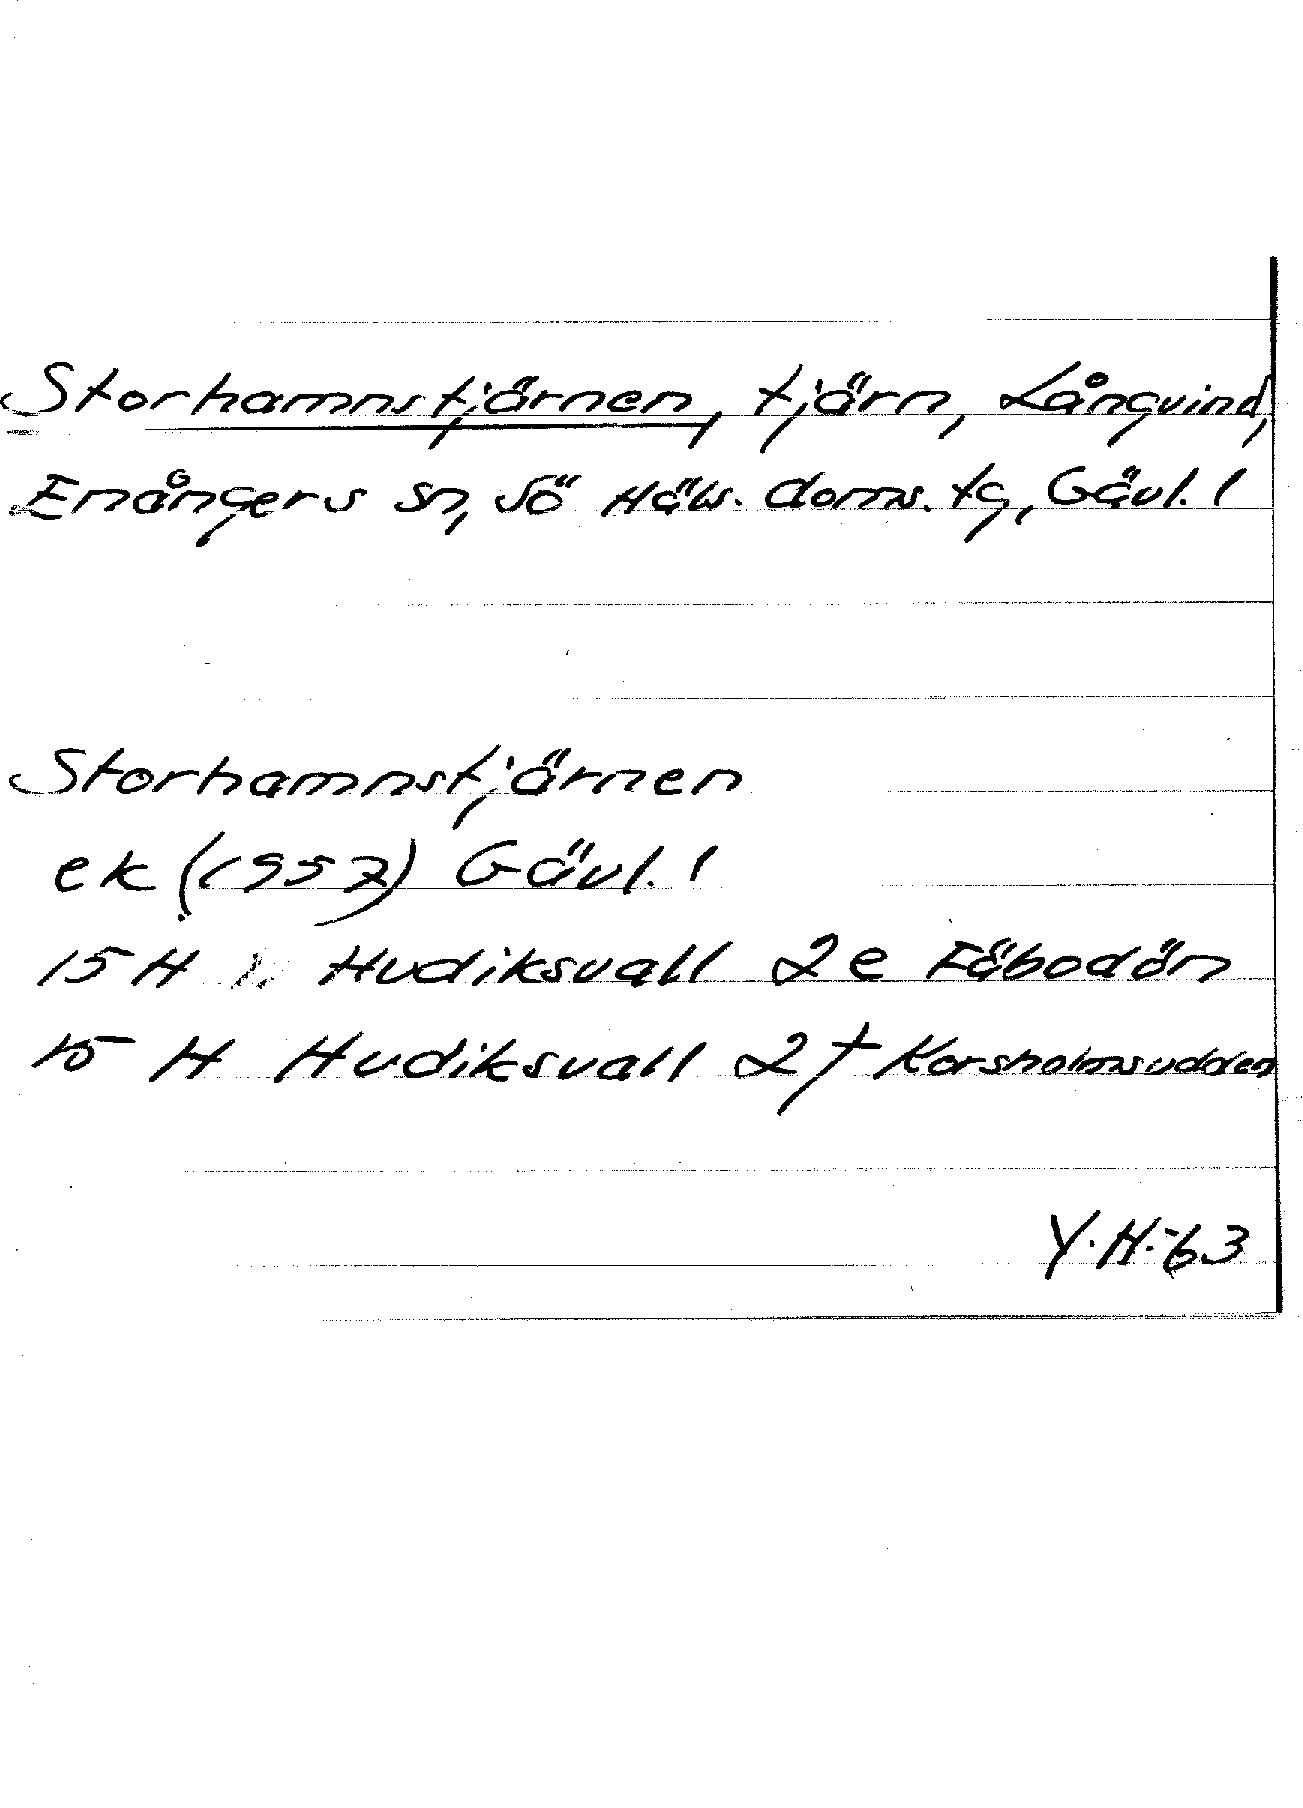 Storhamnstjärnen, tjärn, Långvind,
Enångers sn, Sö Häls. doms. tg, Gävl. l
Storhamnstjärnen
ek (1957) Gävl. l
15 H Hudiksvall 2e Fäbodön
15 H Hudiksvall 2f Korsholmsudden
Y.H.-63